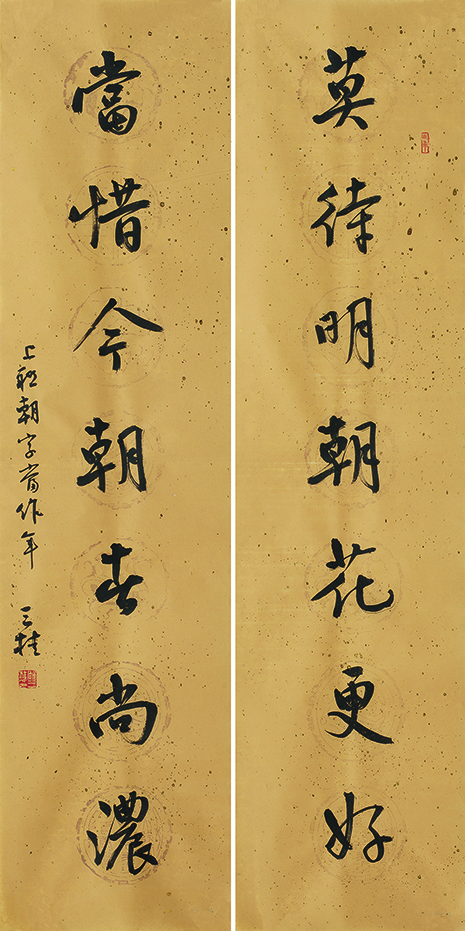 莫待明朝花更好
當惜今朝春尚濃
上聯朝字當作年
三桂